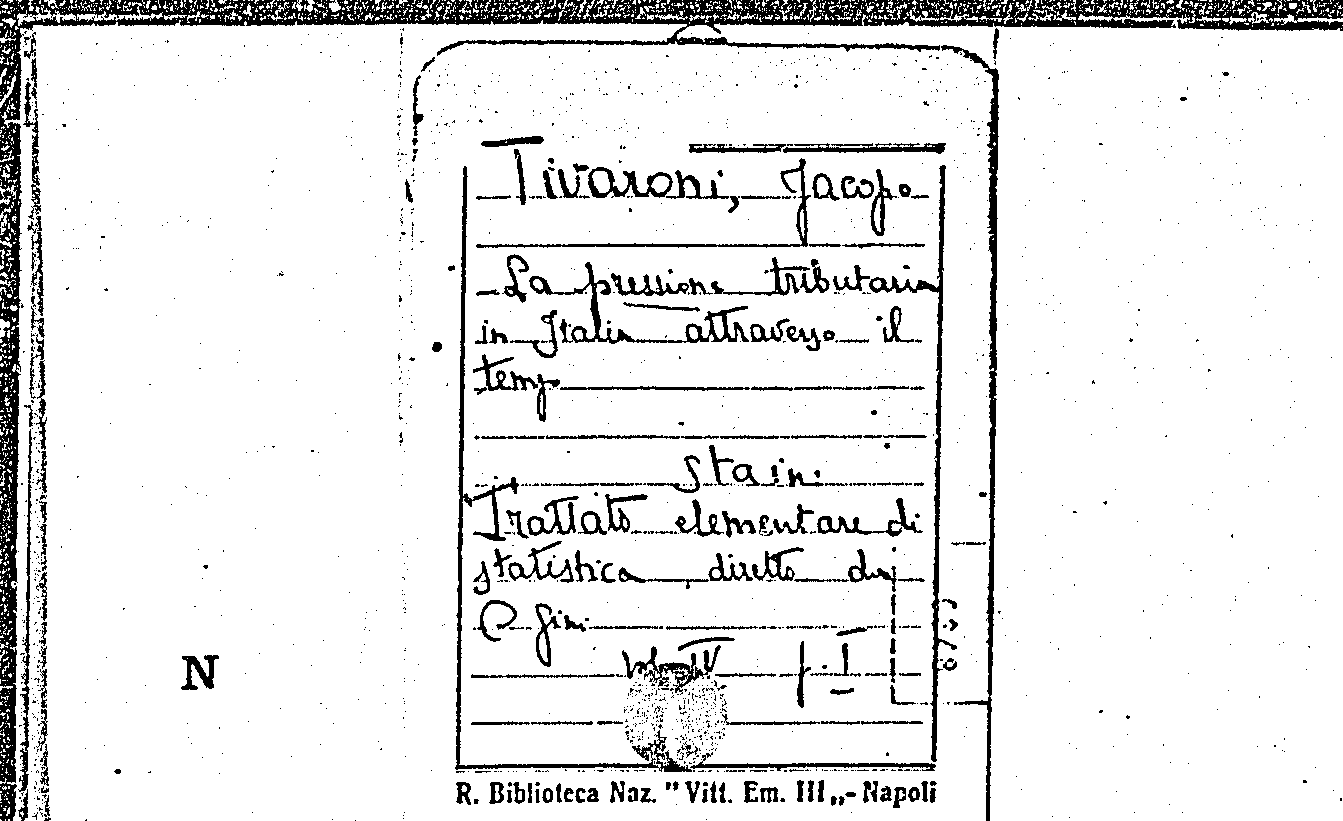 Tivaroni, Jacopo
La pressione tributaria
in Italia attraverso il
tempo
sta in:
Trattato elementare di
statistica, diretto da
C Gini
vol. IV p. I
N
R. Biblioteca Naz. "Vitt. Em. III„- Napoli